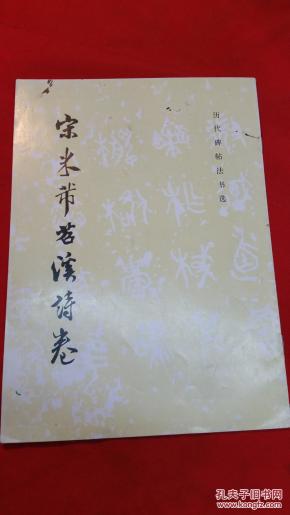 历代碑帖法书选
宋米芾苕溪诗卷
孔夫子旧书网